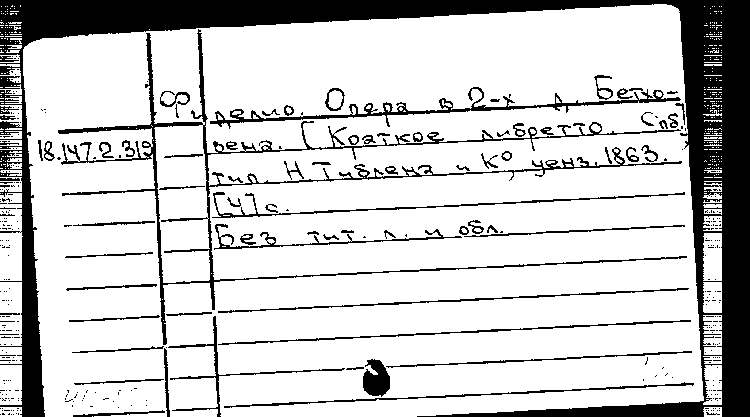 Фиделио. Опера в 2-х д. Бетхо-
18.147.2.319 вена. [Краткое либретто. Спб.],
тип. Н. Тиблена и К°, ценз. 1863.
[4] с.
Без тит. л. и обл.